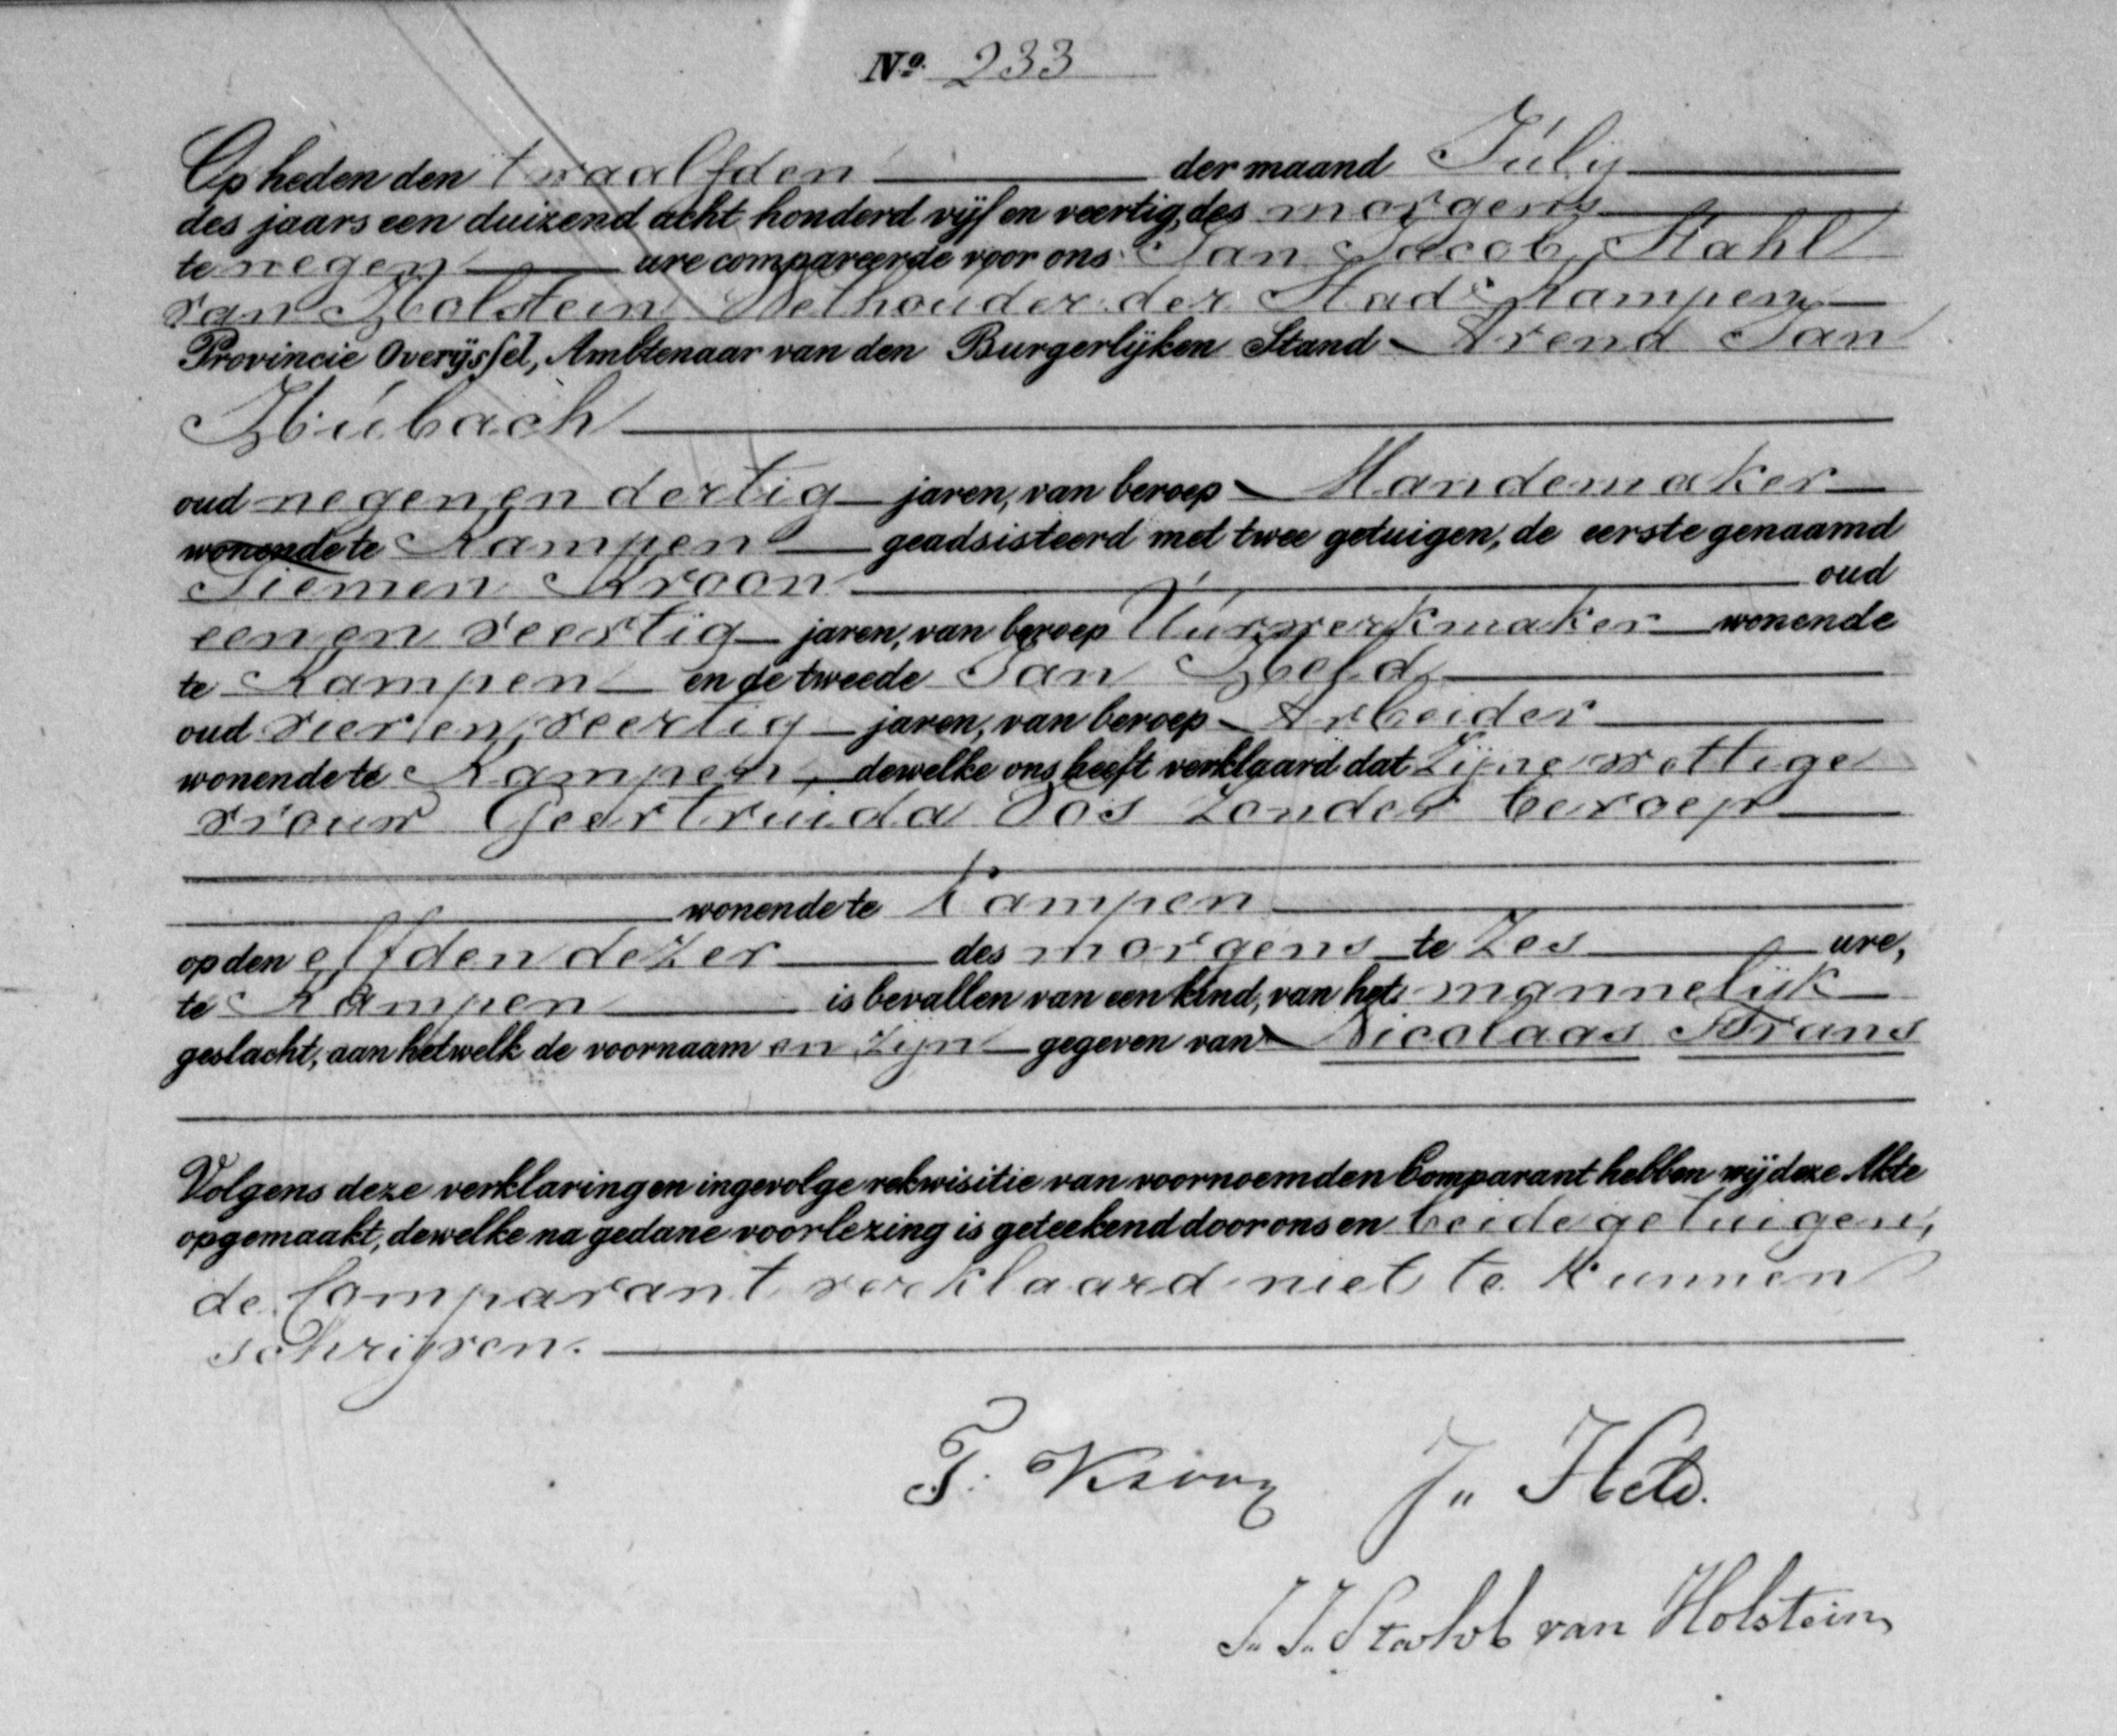 No. 233
Op heden den twaalfden der maand Julij
des jaars een duizend acht honderd vijf en veertig, des morgens
te negen ure compareerde voor ons Jan Jacob Stahl
van Holstein Wethouder der Stad Kampen
Provincie Overijssel, Ambtenaar van den Burgerlijken Stand Arend Jan
Hübach
oud negen en dertig jaren, van beroep Mandemaker
wonende te Kampen geadsisteerd met twee getuigen, de eerste genaamd
Tiemen Kroon oud
een en veertig jaren, van beroep Uurwerkmaker wonende
te Kampen en de tweede Jan Held
oud vier en veertig jaren, van beroep Arbeider
wonende te Kampen, dewelke ons heeft verklaard dat zijne wettige
vrouw Geertruida Vos zonder beroep
wonende te Kampen
op den elfden dezer des morgens te zes ure,
te Kampen is bevallen van een kind, van het mannelijk
geslacht, aan hetwelk de voornaam en zijn gegeven van Nicolaas Frans
Volgens deze verklaring en ingevolge rekwisitie van voornoemden Comparant hebben wij deze Akte
opgemaakt, dewelke na gedane voorlezing is geteekend door ons en beide getuigen,
de Comparant verklaard niet te kunnen
schrijven.
T. Kroon J. Held.
J. J. Stahl van Holstein